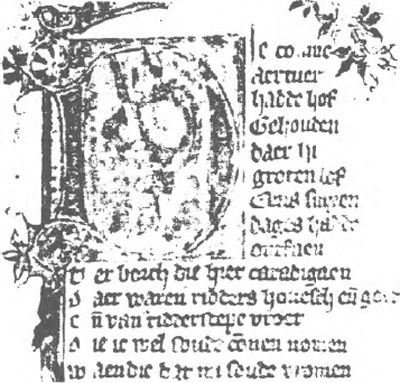 Die
Aertuer
hadde hof
Gehouden
daer hi
groten lof
dages hadde
ontfaen
T er borch die hiet caradigaen
D aer waren ridders houesch eñ goet
E ñ van ridderscepe vroet
D ie ic wel soude cōnen nomen
W aendic dat mi soude vromen